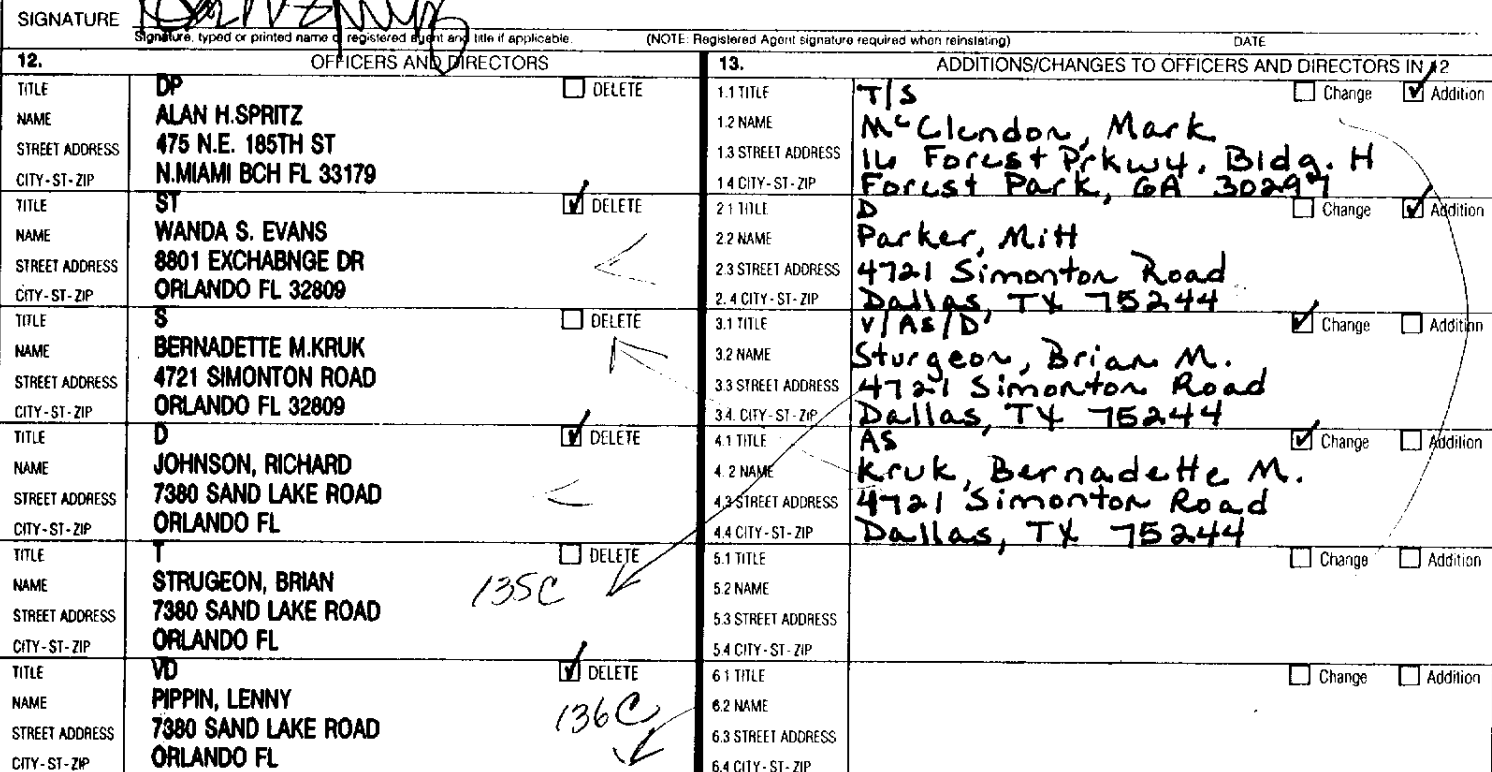 SIGNATURE
Signature, typed or printed name of registered agent and title if applicable. (NOTE: Registered Agent signature required when reinstating) DATE
12. OFFICERS AND DIRECTORS
TITLE DP DELETE
NAME ALAN H.SPRITZ
STREET ADDRESS 475 N.E. 185TH ST
CITY-ST-ZIP N.MIAMI BCH FL 33179
TITLE ST DELETE
NAME WANDA S. EVANS
STREET ADDRESS 8801 EXCHABNGE DR
CITY-ST-ZIP ORLANDO FL 32809
TITLE S DELETE
NAME BERNADETTE M.KRUK
STREET ADDRESS 4721 SIMONTON ROAD
CITY-ST-ZIP ORLANDO FL 32809
TITLE D DELETE
NAME JOHNSON, RICHARD
STREET ADDRESS 7380 SAND LAKE ROAD
CITY-ST-ZIP ORLANDO FL
TITLE T DELETE
NAME STRUGEON, BRIAN 135C
STREET ADDRESS 7380 SAND LAKE ROAD
CITY-ST-ZIP ORLANDO FL
TITLE VD DELETE
NAME PIPPIN, LENNY 136C
STREET ADDRESS 7380 SAND LAKE ROAD
CITY-ST-ZIP ORLANDO FL
13. ADDITIONS/CHANGES TO OFFICERS AND DIRECTORS IN 12
1.1 TITLE T/S Change Addition
1.2 NAME McClendon, Mark
1.3 STREET ADDRESS 16 Forest Prkwy. Bldg. H
1.4 CITY-ST-ZIP Forest Park, GA 30297
2.1 TITLE D Change Addition
2.2 NAME Parker, Mitt
2.3 STREET ADDRESS 4721 Simonton Road
2.4 CITY-ST-ZIP Dallas, TX 75244
3.1 TITLE V/AS/D Change Addition
3.2 NAME Sturgeon, Brian M.
3.3 STREET ADDRESS 4721 Simonton Road
3.4. CITY-ST-ZIP Dallas, TX 75244
4.1 TITLE AS Change Addition
4.2 NAME Kruk, Bernadette M.
4.3 STREET ADDRESS 4721 Simonton Road
4.4 CITY-ST-ZIP Dallas, TX 75244
5.1 TITLE Change Addition
5.2 NAME
5.3 STREET ADDRESS
5.4 CITY-ST-ZIP
6.1 TITLE Change Addition
6.2 NAME
6.3 STREET ADDRESS
6.4 CITY-ST-ZIP